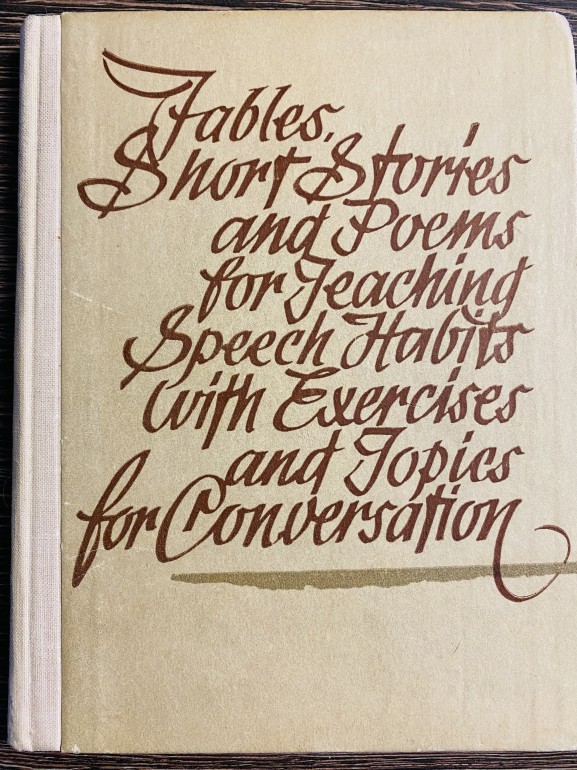 Fables,
Short Stories
and Poems
for Teaching
Speech Habits
with Exercises
and Topics
for Conversation